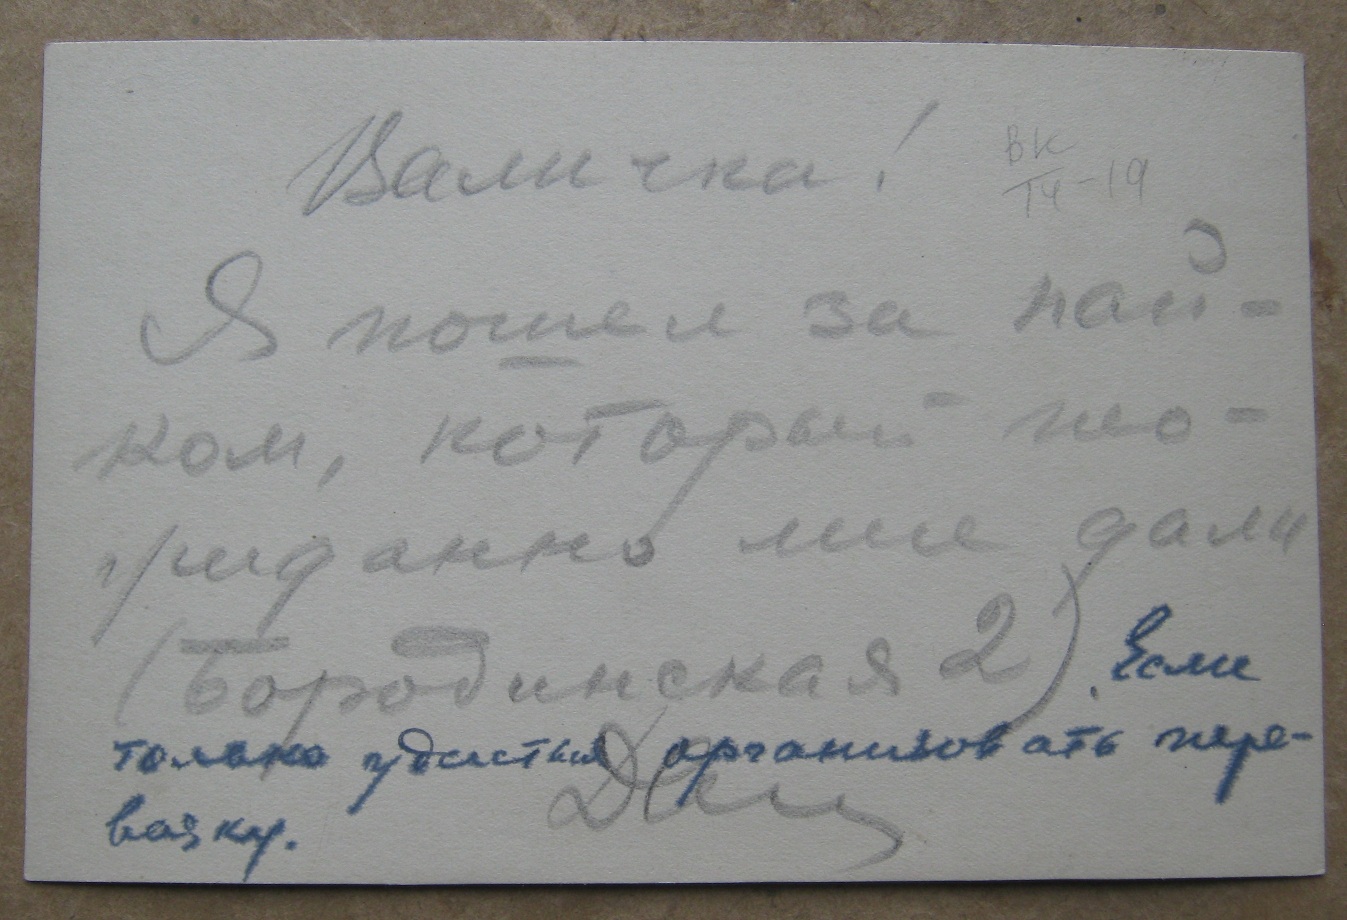 Валичка!
ВК
14-19
Я пошел за пай-
ком, который нео-
жиданно мне дали
(Бородинская 2). Если
только удастся организовать пере-
возку.
Дан